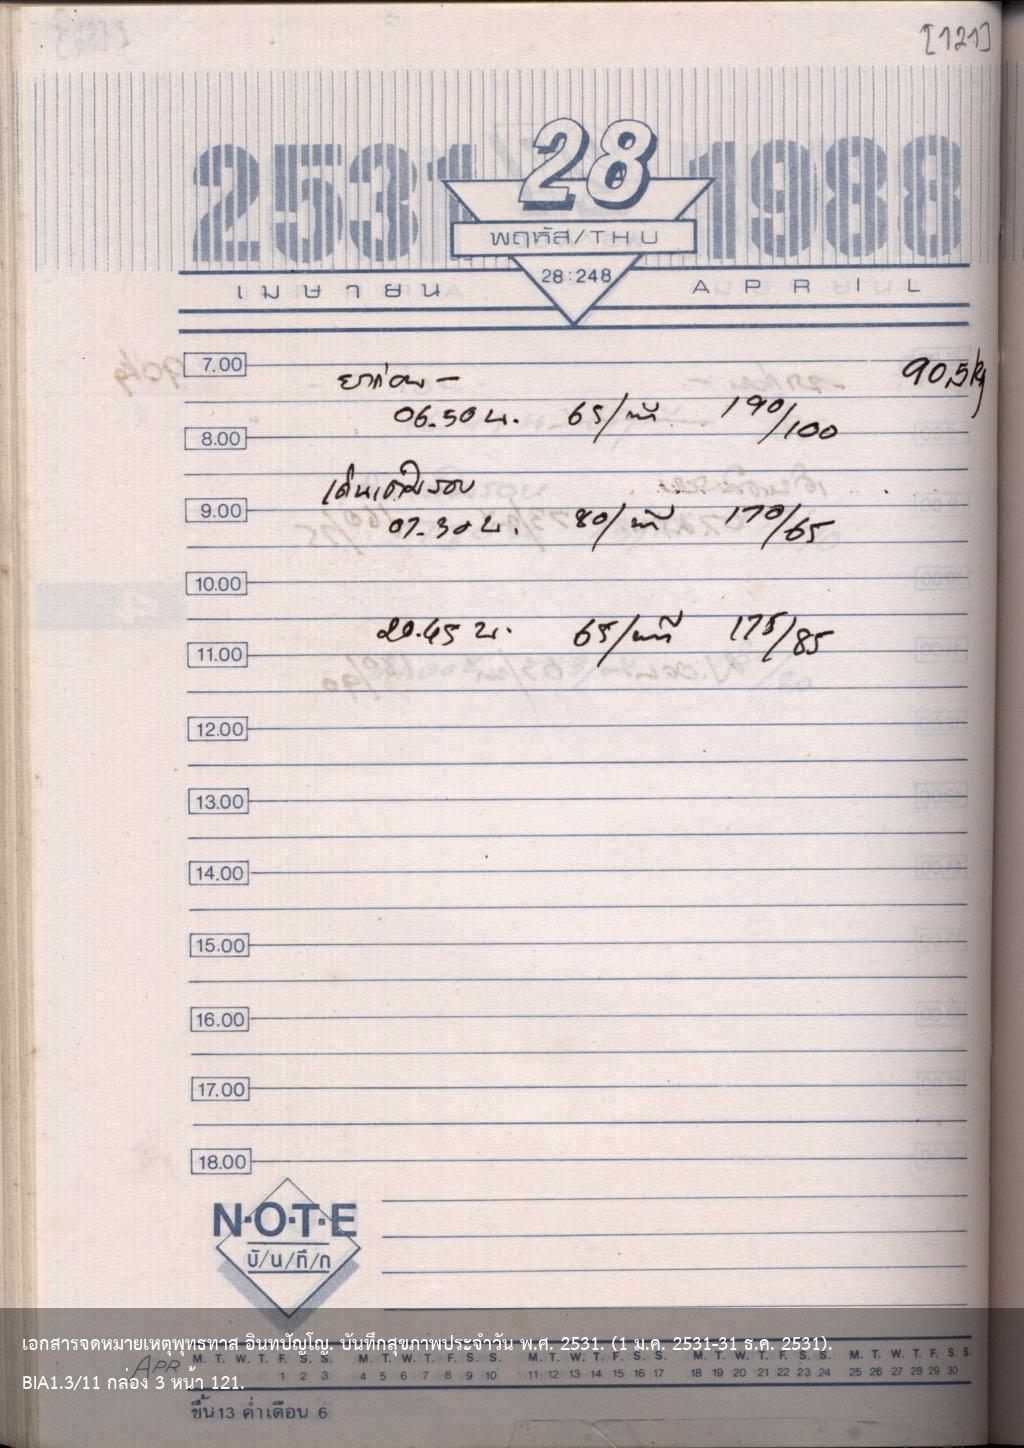 [121]
2531 28 1988
พฤหัส/THU
28:248
เมษายน APRIL
7.00
90.5 kg
06.50 น. 65/นาที 190/100
8.00
9.00
07.30 น. 80/นาที 170/65
10.00
20.45 น. 65/นาที 175/85
11.00
12.00
13.00
14.00
15.00
16.00
17.00
18.00
N·O·T·E
บั/น/ทึ/ก
เอกสารจดหมายเหตุพุทธทาส อินทปัญโญ. บันทึกสุขภาพประจำวัน พ.ศ. 2531. (1 ม.ค. 2531-31 ธ.ค. 2531).
APR M. T. W. T. F. S. S. M. T. W. T. F. S. S. M. T. W. T. F. S. S. M. T. W. T. F. S. S. M. T. W. T. F. S. S.
1 2 3 4 5 6 7 8 9 10 11 12 13 14 15 16 17 18 19 20 21 22 23 24 25 26 27 28 29 30
BIA1.3/11 กล่อง 3 หน้า 121.
ขึ้น 13 ค่ำ เดือน 6